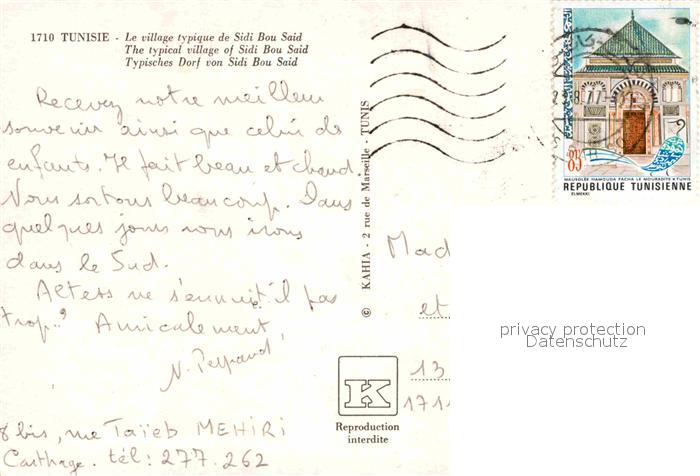 1710 TUNISIE - Le village typique de Sidi Bou Said
The typical village of Sidi Bou Said
Typisches Dorf von Sidi Bou Said
Recevez notre meilleur
souvenir ainsi que celui des
enfants. Il fait beau et chaud.
Nous sortons beaucoup. Dans
quelques jours nous irons
dans le Sud.
ne s'ennuit'il pas
trop..? Amicalement,
N.
8 bis, rue Taïeb MEHIRI
Carthage. tél: 277.262
© KAHIA - 2 rue de Marseille - TUNIS
Reproduction
interdite
K
85
MAUSOLEE HAMOUDA PACHA LE MOURADITE TUNIS
REPUBLIQUE TUNISIENNE
ELMEKKI
8.77
Mad
et
13
171
privacy protection
Datenschutz